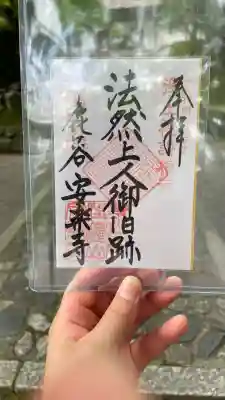 奉拝
法然上人御旧跡
鹿ヶ谷安楽寺